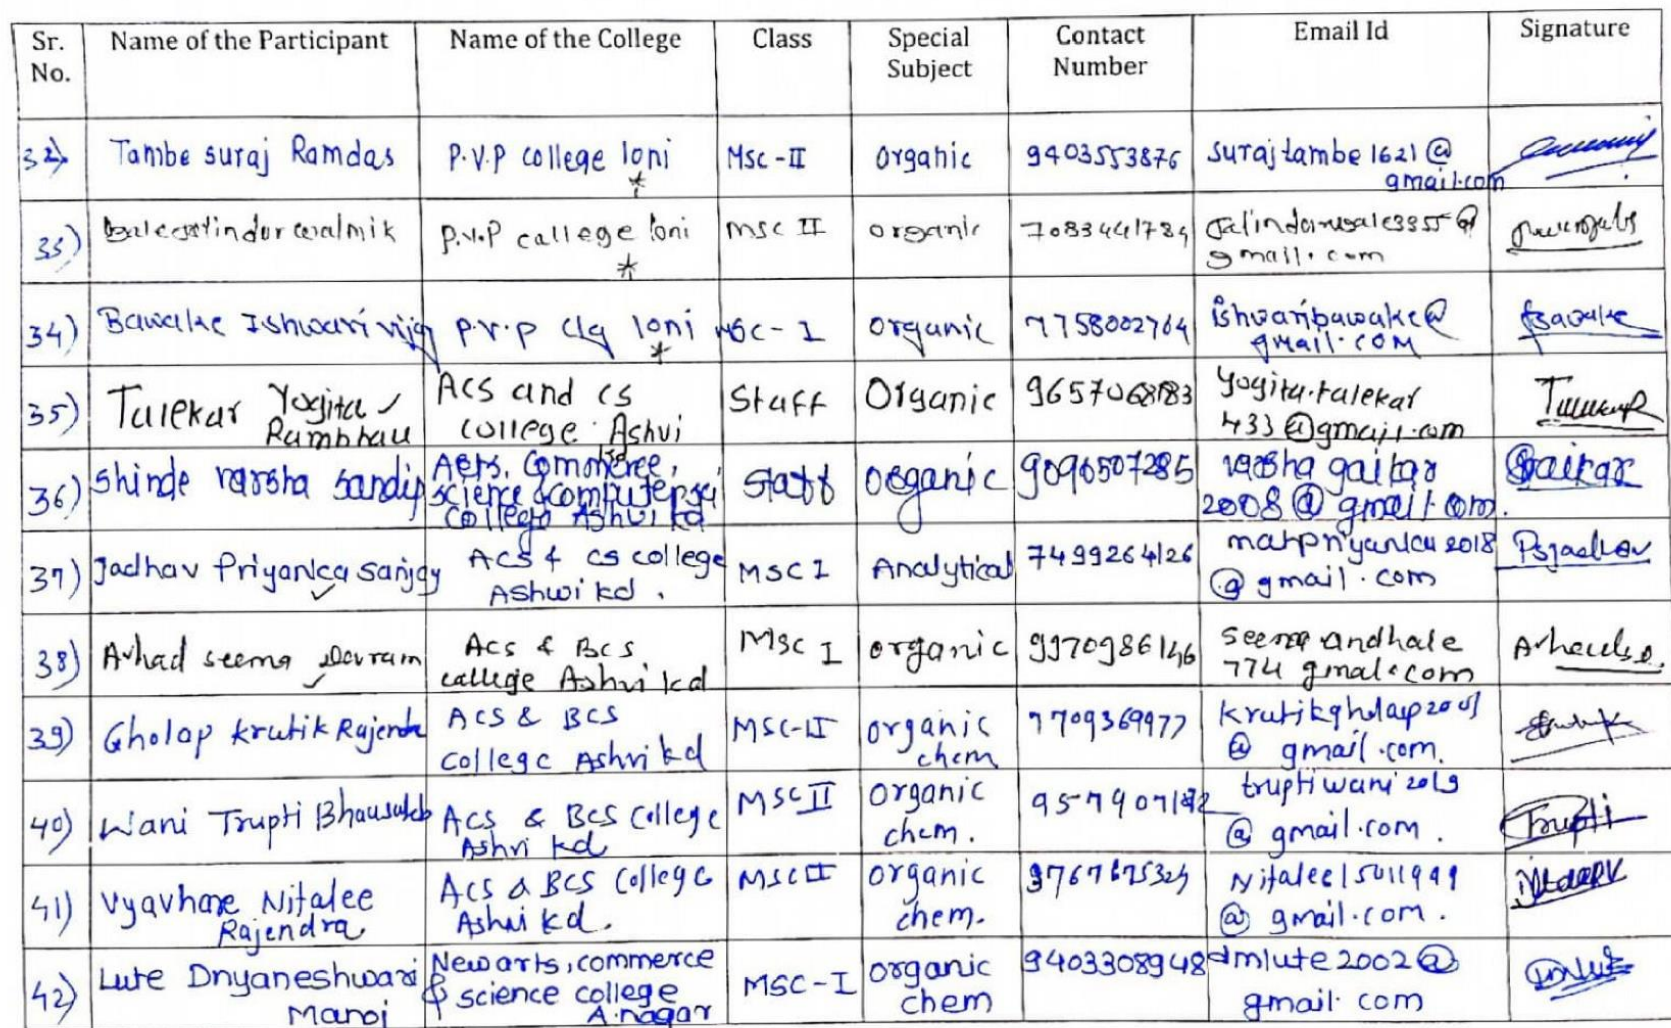 Sr. No. Name of the Participant Name of the College Class Special Subject Contact Number Email Id Signature
32) Tambe suraj Ramdas P.V.P college loni Msc-II organic 9403553876 surajtambe1621@gmail.com
33) P.V.P college loni msc II organic gmail.com
34) Bawake Ishwari P.V.P clg loni MSC-I organic 7758002764 ishwaribawake@gmail.com
35) Talekar Yogita Rambhau Acs and cs college Ashvi Staff Organic yogita.talekar433@gmail.com
36) Shinde varsha sandip Arts, Commerce, science & computer sci College Ashvi kd Staff organic 9096507285 varsha gaikar2008@gmail.com.
37) Jadhav Priyanka sanjay ACS & CS college Ashwi kd. MSC I Analytical 7499264126 @gmail.com
38) Avhad seema Devram Acs & Bcs college Ashvi kd MSc I organic 9970986146 seema andhale 774 gmal.com
39) Gholap krutik Rajendra ACS & BCS College Ashvi kd MSC-II organic chem 7709369977 @ gmail.com.
40) Wani Trupti Bhausaheb Acs & Bcs College Ashvi kd MSC II organic chem. truptiwani2019 @ gmail.com. Trupti
41) Vyavhare Nitalee Rajendra Acs & BCS College Ashvi kd. MSC II organic chem. @ gmail.com.
42) Lute Dnyaneshwari Manoj New arts, commerce & science college A.nagar MSC-I organic chem 9403308948 dmlute2002@gmail.com